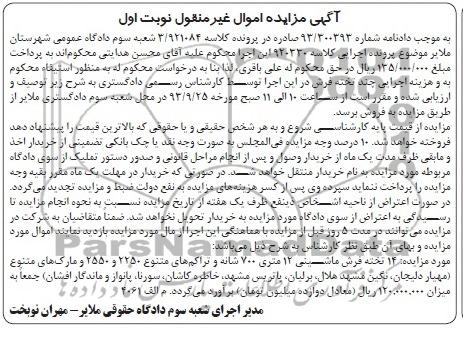 آگهی مزایده اموال غیرمنقول نوبت اول
به موجب دادنامه شماره ۹۳/۳۰۰۳۹۳ صادره در پرونده کلاسه ۳/۹۲۱۰۸۴ شعبه سوم دادگاه عمومی شهرستان
ملایر موضوع پرونده اجرایی کلاسه ۹۴۰۳۳۰ این اجرا محکوم علیه آقای محسن هدایتی محکوم‌اند به پرداخت
مبلغ ۱۳۵/۰۰۰/۰۰۰ ریال در حق محکوم له علی باقری، لذا بنا به درخواست محکوم له به منظور استیفاء محکوم
به و هزینه اجرایی چند تخته فرش در این اجرا توسط کارشناس رسمی دادگستری به شرح زیر توصیف و
ارزیابی شده و مقرر است از ساعت ۱۰ الی ۱۱ صبح مورخه ۹۳/۹/۲۵ در محل شعبه سوم دادگستری ملایر از
طریق مزایده به فروش برسد.
مزایده از قیمت پایه کارشناسی شروع و به هر شخص حقیقی و یا حقوقی که بالاترین قیمت را پیشنهاد دهد
فروخته خواهد شد. ۱۰ درصد وجه مزایده فی‌المجلس به صورت وجه نقد یا چک بانکی تضمینی از خریدار اخذ
و مابقی ظرف مدت یک ماه از خریدار وصول و پس از انجام مراحل قانونی و صدور دستور تملیک از سوی دادگاه
مربوطه مورد مزایده به نام خریدار منتقل خواهد شد. در صورتی که خریدار در مهلت یک ماه مقرر بقیه وجه
مزایده را پرداخت ننماید سپرده وی پس از کسر هزینه‌های مزایده به نفع دولت ضبط و مزایده تجدید می‌گردد.
در صورت اعتراض از ناحیه اشخاص ذینفع ظرف یک هفته از تاریخ مزایده نسبت به نحوه انجام مزایده تا
رسیدگی به اعتراض از سوی دادگاه مورد مزایده به خریدار تحویل نخواهد شد. ضمناً متقاضیان به شرکت در
مزایده می‌توانند در مدت ۵ روز قبل از مزایده با هماهنگی این اجرا از مال مورد مزایده بازدید نمایند اموال مورد
مزایده و بهای آن طبق نظر کارشناسی به شرح ذیل می‌باشد:
مورد مزایده: ۱۴ تخته فرش ماشینی ۱۲ متری ۷۰۰ شانه و تراکم‌های متنوع ۲۲۵۰ و ۲۵۵۰ و مارک‌های متنوع
(مهیار دلیجان، نگین مشهد هلال، برلیان، پاتریس مشهد، خاطره کاشان، سورنا، پانوا ز و ماندگار افشان) جمعاً به
میزان ۱۲۰.۰۰۰.۰۰۰ ریال (معادل دوازده میلیون تومان) برآورد می‌گردد. م الف ۴۰۶۱
مدیر اجرای شعبه سوم دادگاه حقوقی ملایر – مهران نوبخت